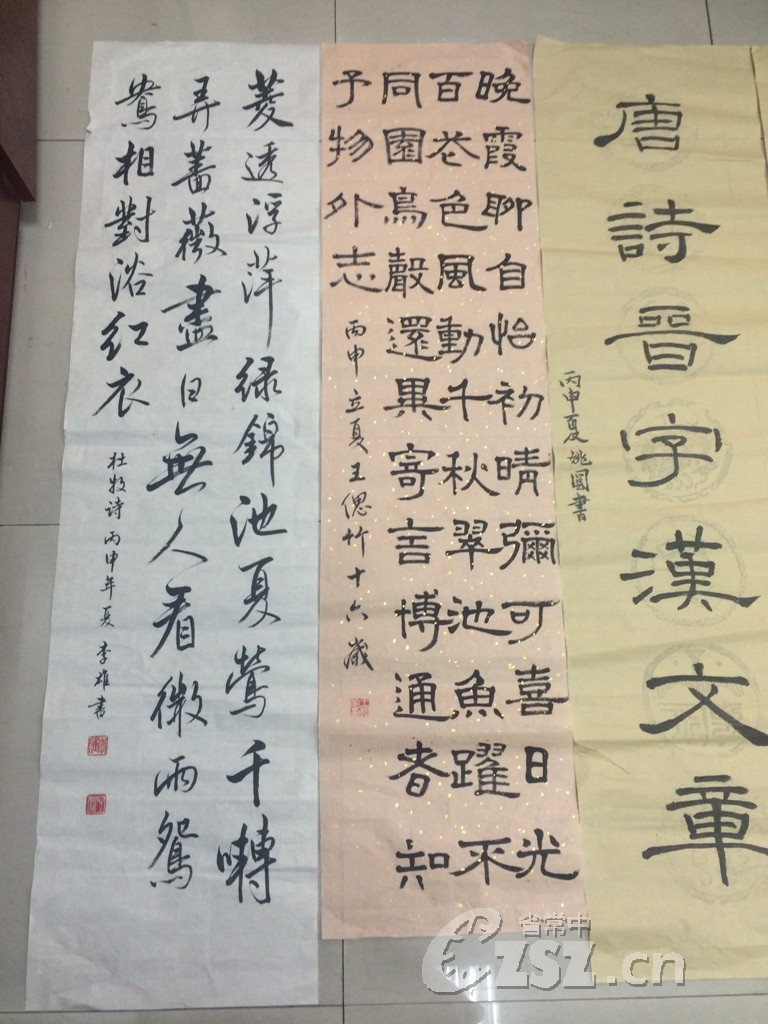 唐詩晉字漢文章
丙申夏姚圆書
晚霞聊自怡初晴彌可喜日光
百花色風動千秋翠池魚躍不
同園鳥聲還異寄言博通者知
予物外志
丙申立夏王偲竹十六歲
菱透浮萍緑錦池夏鶯千囀
弄薔薇盡日無人看微雨鴛
鴦相對浴紅衣
杜牧诗丙申年夏李雄書
省常中
CZSZ.cn